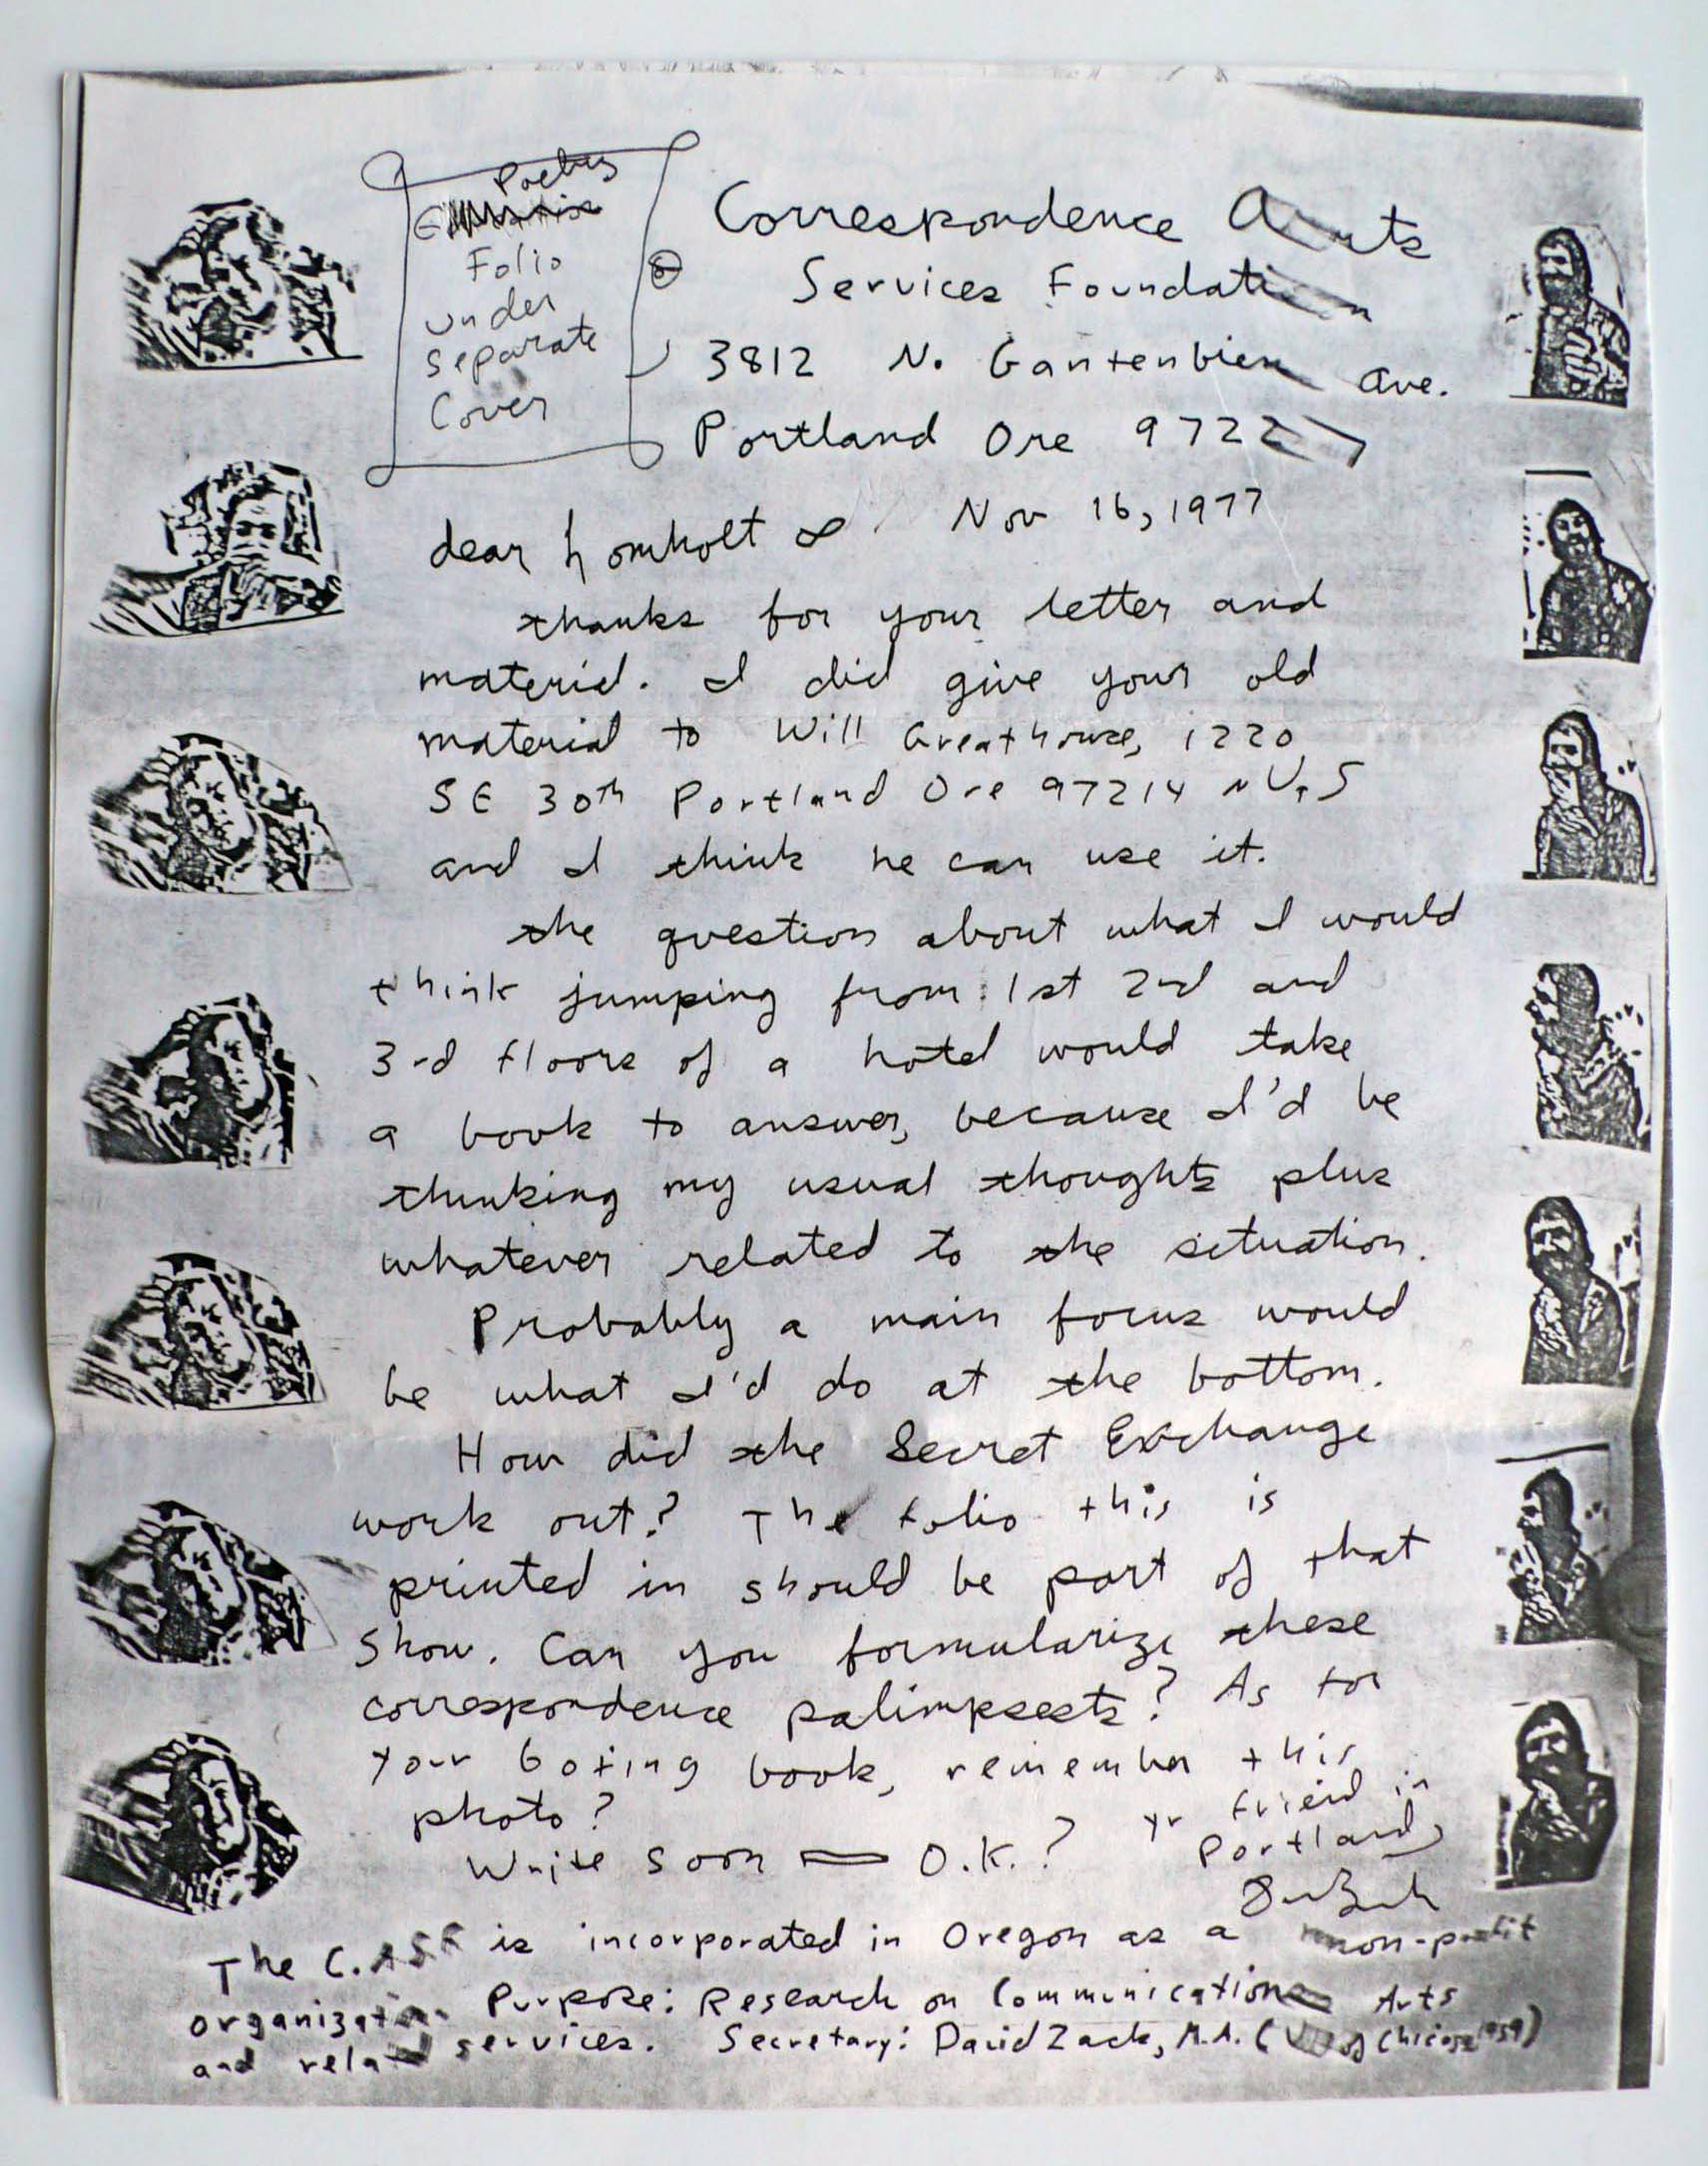 Poetry
Folio
under
separate
Cover
Correspondence Arts
Services Foundation
3812 N. Gantenbien Ave.
Portland Ore 97227
Nov 16, 1977
dear Lomholt
thanks for your letter and
material. I did give your old
material to Will Greathouse, 1220
SE 30th Portland Ore 97214
and I think he can use it.
the question about what I would
think jumping from 1st 2nd and
3rd floors of a hotel would take
a book to answer, because I'd be
thinking my usual thoughts plus
whatever related to the situation.
Probably a main focus would
be what I'd do at the bottom.
How did the Secret Exchange
work out? The folio this is
printed in should be part of that
Show. Can you formularize these
correspondence palimpsests? As for
your boxing book, remember this
photo?
Write soon = O.K.?
yr friend in
Portland,
The C.ASF is incorporated in Oregon as a non-profit
organization. Purpose: Research on Communications Arts
and related services. Secretary: David Zack, M.A. (U of Chicago 1959)